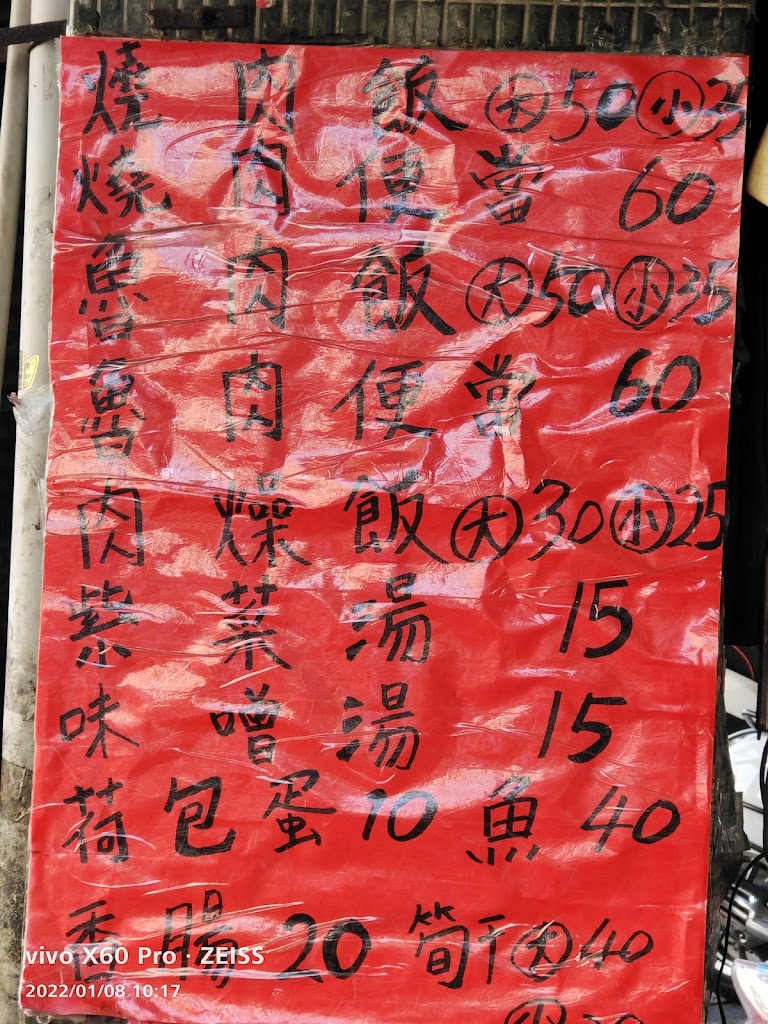 燒肉飯大50小35
燒肉便當 60
魯肉飯大50小35
魯肉便當 60
肉燥飯大30小25
紫菜湯 15
味噌湯 15
荷包蛋10 魚40
香腸20 筍干大40
小
vivo X60 Pro · ZEISS
2022/01/08 10:17